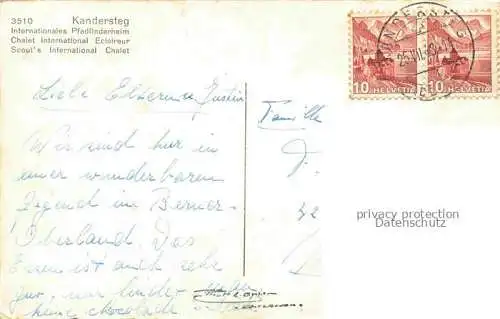 3510 Kandersteg
Internationales Pfadfinderheim
Chalet International Eclaireur
Scout's International Chalet
10 HELVETIA
10 HELVETIA
KANDERSTEG
Liebe Eltern
Familie
Wir sind hier in
einer wunderbaren
Gegend im Berner
Oberland. Das
Essen ist auch sehr
gut, nur leider
keine chocolade
privacy protection
Datenschutz